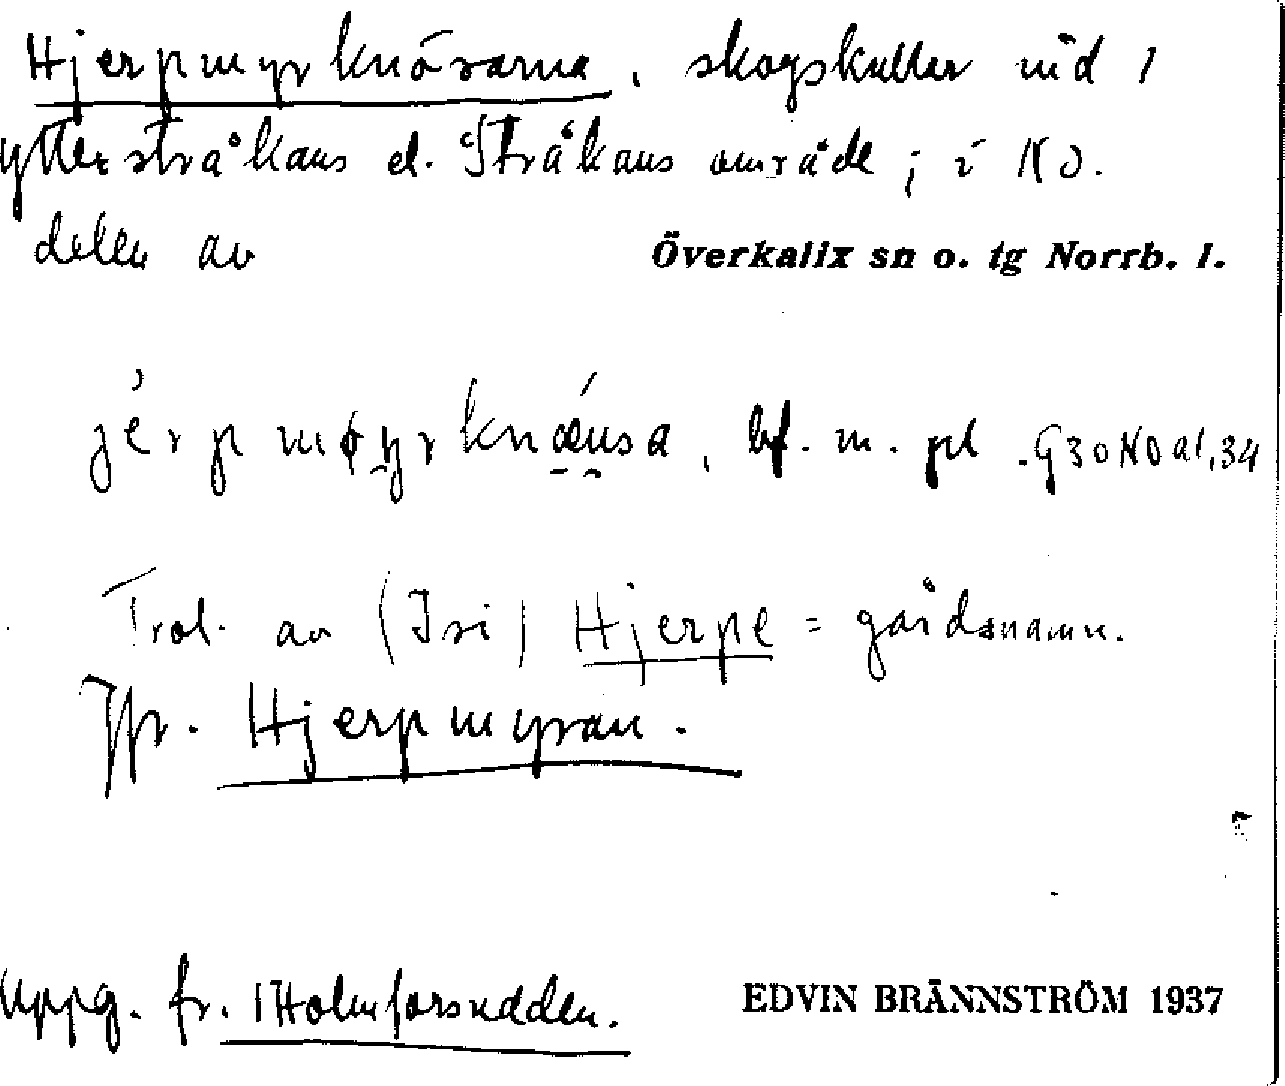 Hjerpmyrknösarna, skogskullar vid /
ytterstråkans el. Stråkans område; i NO.
delen av Överkalix sn o. tg Norrb. l.
jérpmøyrknǽusa, bf. m. pl. G30NOa1,34
Trol. av (Isi) Hjerpe = gårdsnamn.
Jfr. Hjerpmyran.
Uppg. fr. Holmforsudden. EDVIN BRÄNNSTRÖM 1937